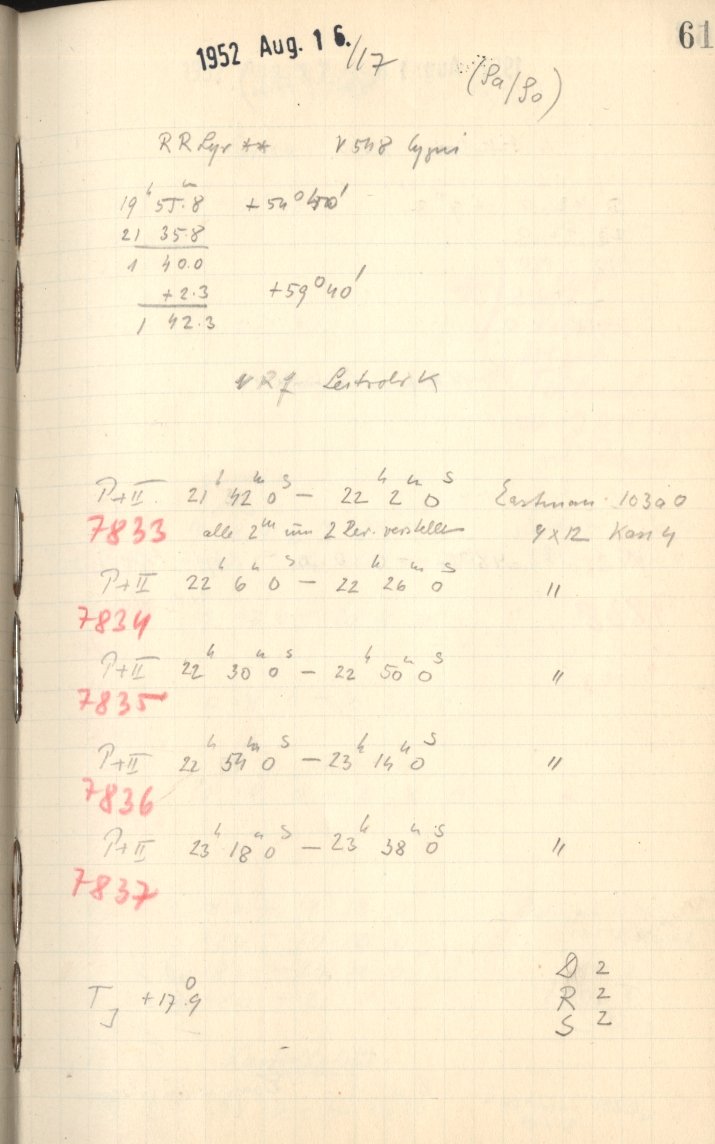 61
1952 Aug. 16./17 (Sa/So)
RR Lyr ** V 548 Cygni
19ʰ 55ᵐ.8 +54° 40'
21 35.8
1 40.0
+2.3 +59° 40'
1 42.3
P+II 21ʰ 42ᵐ 0ˢ – 22ʰ 2ᵐ 0ˢ Eastman 103a0
7833 alle 2ᵐ um 2 Rev. verstellen 9x12 Kass 4
P+II 22ʰ 6ᵐ 0ˢ – 22ʰ 26ᵐ 0ˢ "
7834
P+II 22ʰ 30ᵐ 0ˢ – 22ʰ 50ᵐ 0ˢ "
7835
P+II 22ʰ 54ᵐ 0ˢ – 23ʰ 14ᵐ 0ˢ "
7836
P+II 23ʰ 18ᵐ 0ˢ – 23ʰ 38ᵐ 0ˢ "
7837
D 2
T_J +17°.9 R 2
S 2